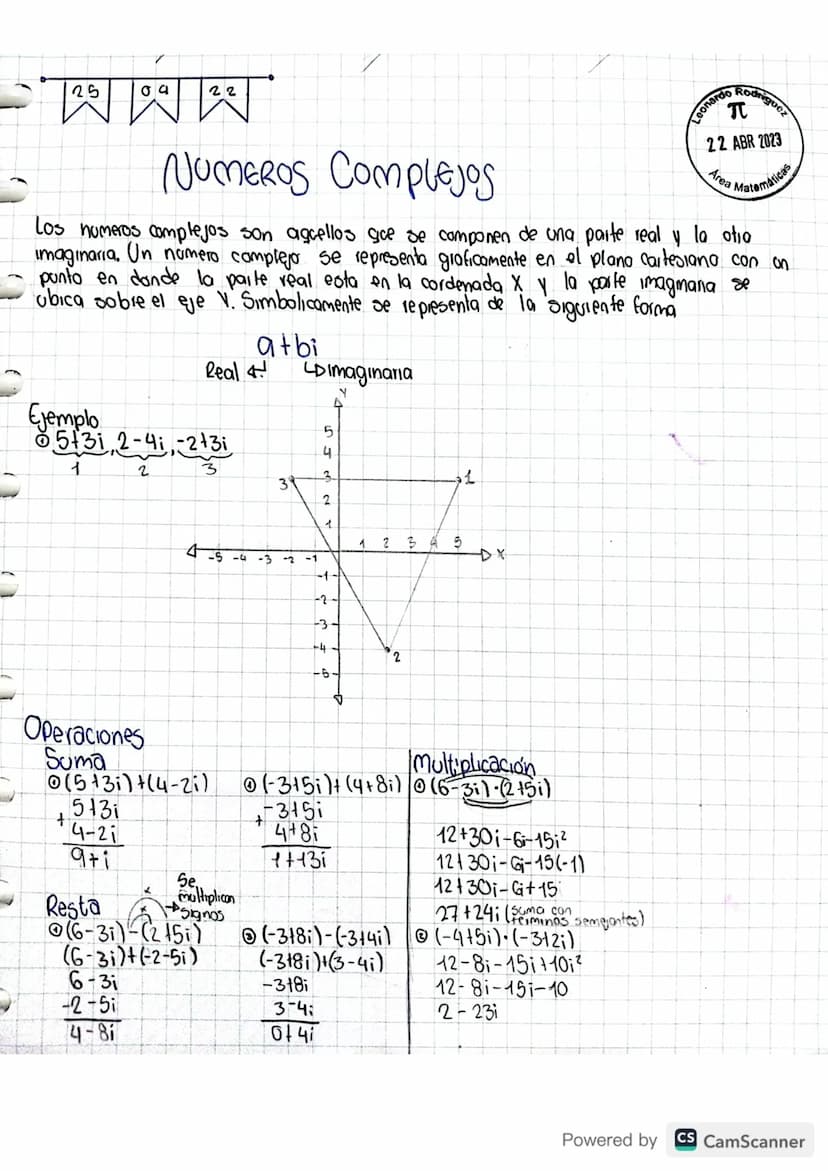 25 09 22
Leonardo Rodríguez
π
22 ABR 2023
Área Matemáticas
NUMEROS COMPLEJOS
Los numeros complejos son aquellos que se componen de una parte real y la otra
imaginaria. Un numero complejo se representa graficamente en el plano cartesiano con un
punto en donde la parte real esta en la cordenada X y la parte imaginaria se
ubica sobre el eje Y. Simbolicamente se representa de la siguiente forma
a+bi
Real ↵ ↳ imaginaria
Ejemplo
① 5+3i, 2-4i, -2+3i
1 2 3
Y
5
4
3
2
1
3 1
-5 -4 -3 -2 -1 1 2 3 4 5 X
-1
-2
-3
-4
-5
2
Operaciones
Suma
① (5+3i)+(4-2i)
5+3i
+
4-2i
9+i
② (-3+5i)+(4+8i)
-3+5i
+
4+8i
1+13i
Resta
Se
multiplican
signos
① (6-3i)-(2+5i)
(6-3i)+(-2-5i)
6-3i
-2-5i
4-8i
② (-3+8i)-(-3+4i)
(-3+8i)+(3-4i)
-3+8i
3-4i
0+4i
Multiplicación
① (6-3i)·(2+5i)
12+30i-6i-15i²
12+30i-6i-15(-1)
12+30i-6i+15
27+24i (suma con
terminos semejantes)
② (-4+5i)·(-3+2i)
12-8i-15i+10i²
12-8i-15i-10
2-23i
Powered by CS CamScanner